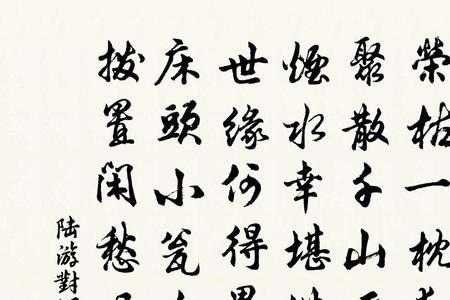 榮枯一枕
聚散千山
煙水幸堪
世緣何得
床頭小瓮
拨置闲愁
陆游對